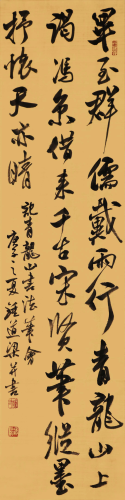 畢至群儒戴雨行青龍山上
謁馮京借來千古宋賢筆縱墨
抒懷天亦晴
記青龍山書法筆會
庚子之夏